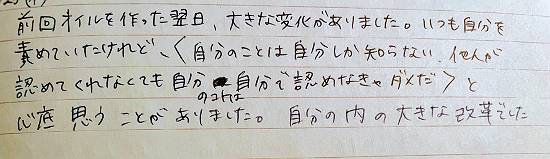 前回オイルを作った翌日、大きな変化がありました。いつも自分を
責めていたけれど、〈自分のことは自分しか知らない、他人が
認めてくれなくても自分のことは自分で認めなきゃダメだ〉と
心底思うことがありました。自分の内の大きな改革でした